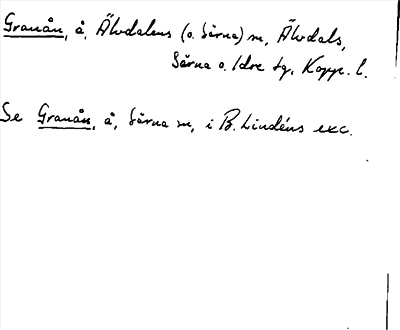 Granån, å, Älvdalens (o. Särna) m, Älvdals,
Särna o. Idre sg, Kopp. l.
Se Granån, å, Särna m, i B. Lindéns exc.